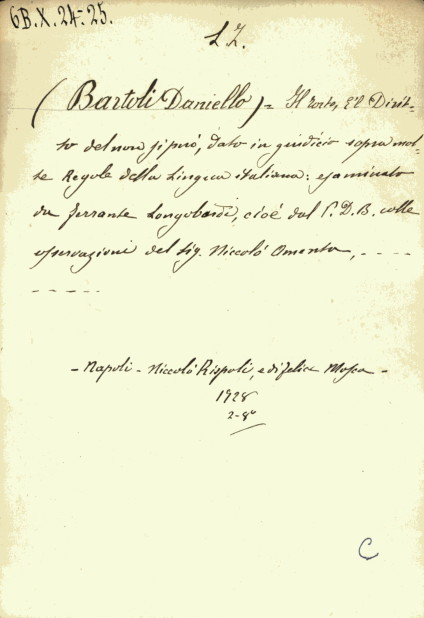 6B.X.24-25.
LZ.
(Bartoli Daniello) = Il torto, e'l Dirit-
to del non si può, dato in giudicio sopra mol-
te Regole della Lingua italiana: esaminato
da ferrante Longobardi, cioé dal P. D. B. colle
osservazioni del Sig. Niccoló Amenta, - - - -
- - - - -
- Napoli - Niccoló Rispoli, e di felice Mosca -
1728
2-8°
C